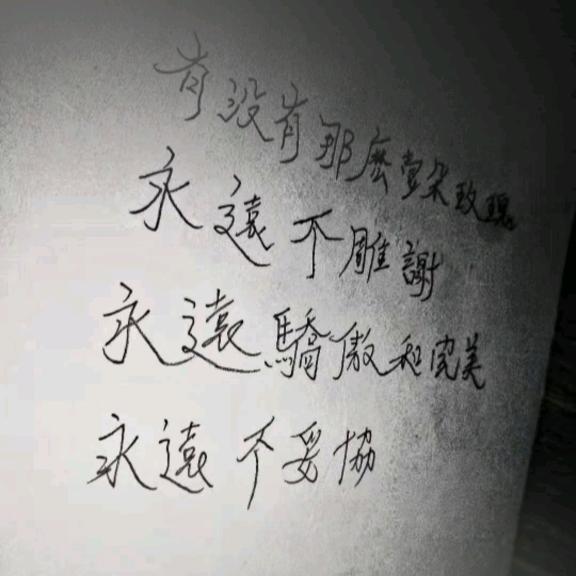 有没有那麼壹朵玫瑰
永遠不雕謝
永遠驕傲和完美
永遠不妥協